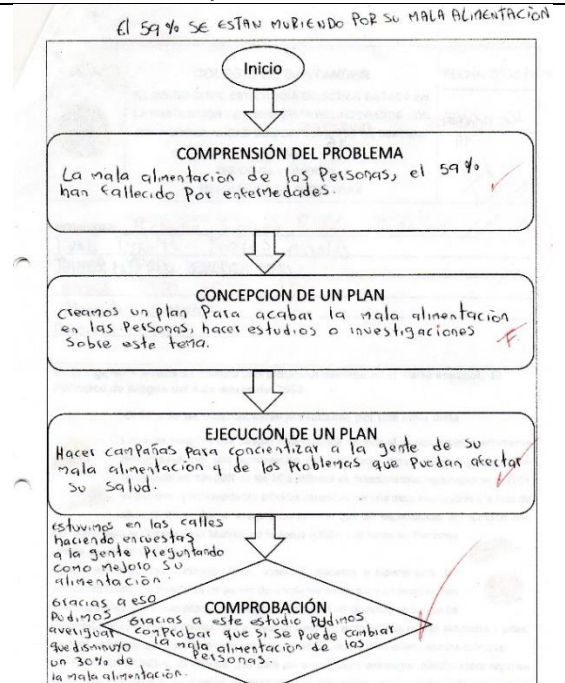 El 59% SE ESTAN MURIENDO POR SU MALA ALIMENTACIÓN
Inicio
COMPRENSIÓN DEL PROBLEMA
La mala alimentación de las Personas, el 59%
han fallecido Por enfermedades.
CONCEPCION DE UN PLAN
creamos un plan Para acabar la mala alimentación
en las Personas, hacer estudios o investigaciones
Sobre este tema.
EJECUCIÓN DE UN PLAN
Hacer campañas Para concientizar a la gente de su
mala alimentación y de los Problemas que Puedan afectar
su salud.
estuvimos en las calles
haciendo encuestas
a la gente Preguntando
como mejoro su
alimentación.
Gracias a eso
Pudimos
averiguar
que disminuyo
un 30% de
la mala alimentación.
COMPROBACIÓN
Gracias a este estudio Pudimos
comprobar que si se Puede cambiar
la mala alimentación de las
Personas.